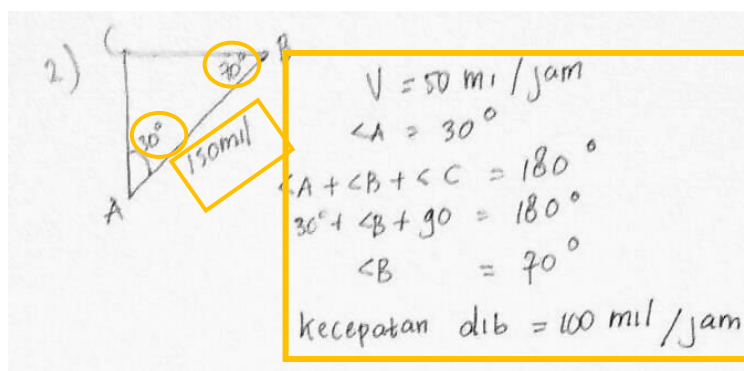 2)
C
B
70°
30°
150mil
A
V = 50 mi/jam
<A = 30°
<A + <B + <C = 180°
30° + <B + 90 = 180°
<B = 70°
Kecepatan dib = 100 mil/jam